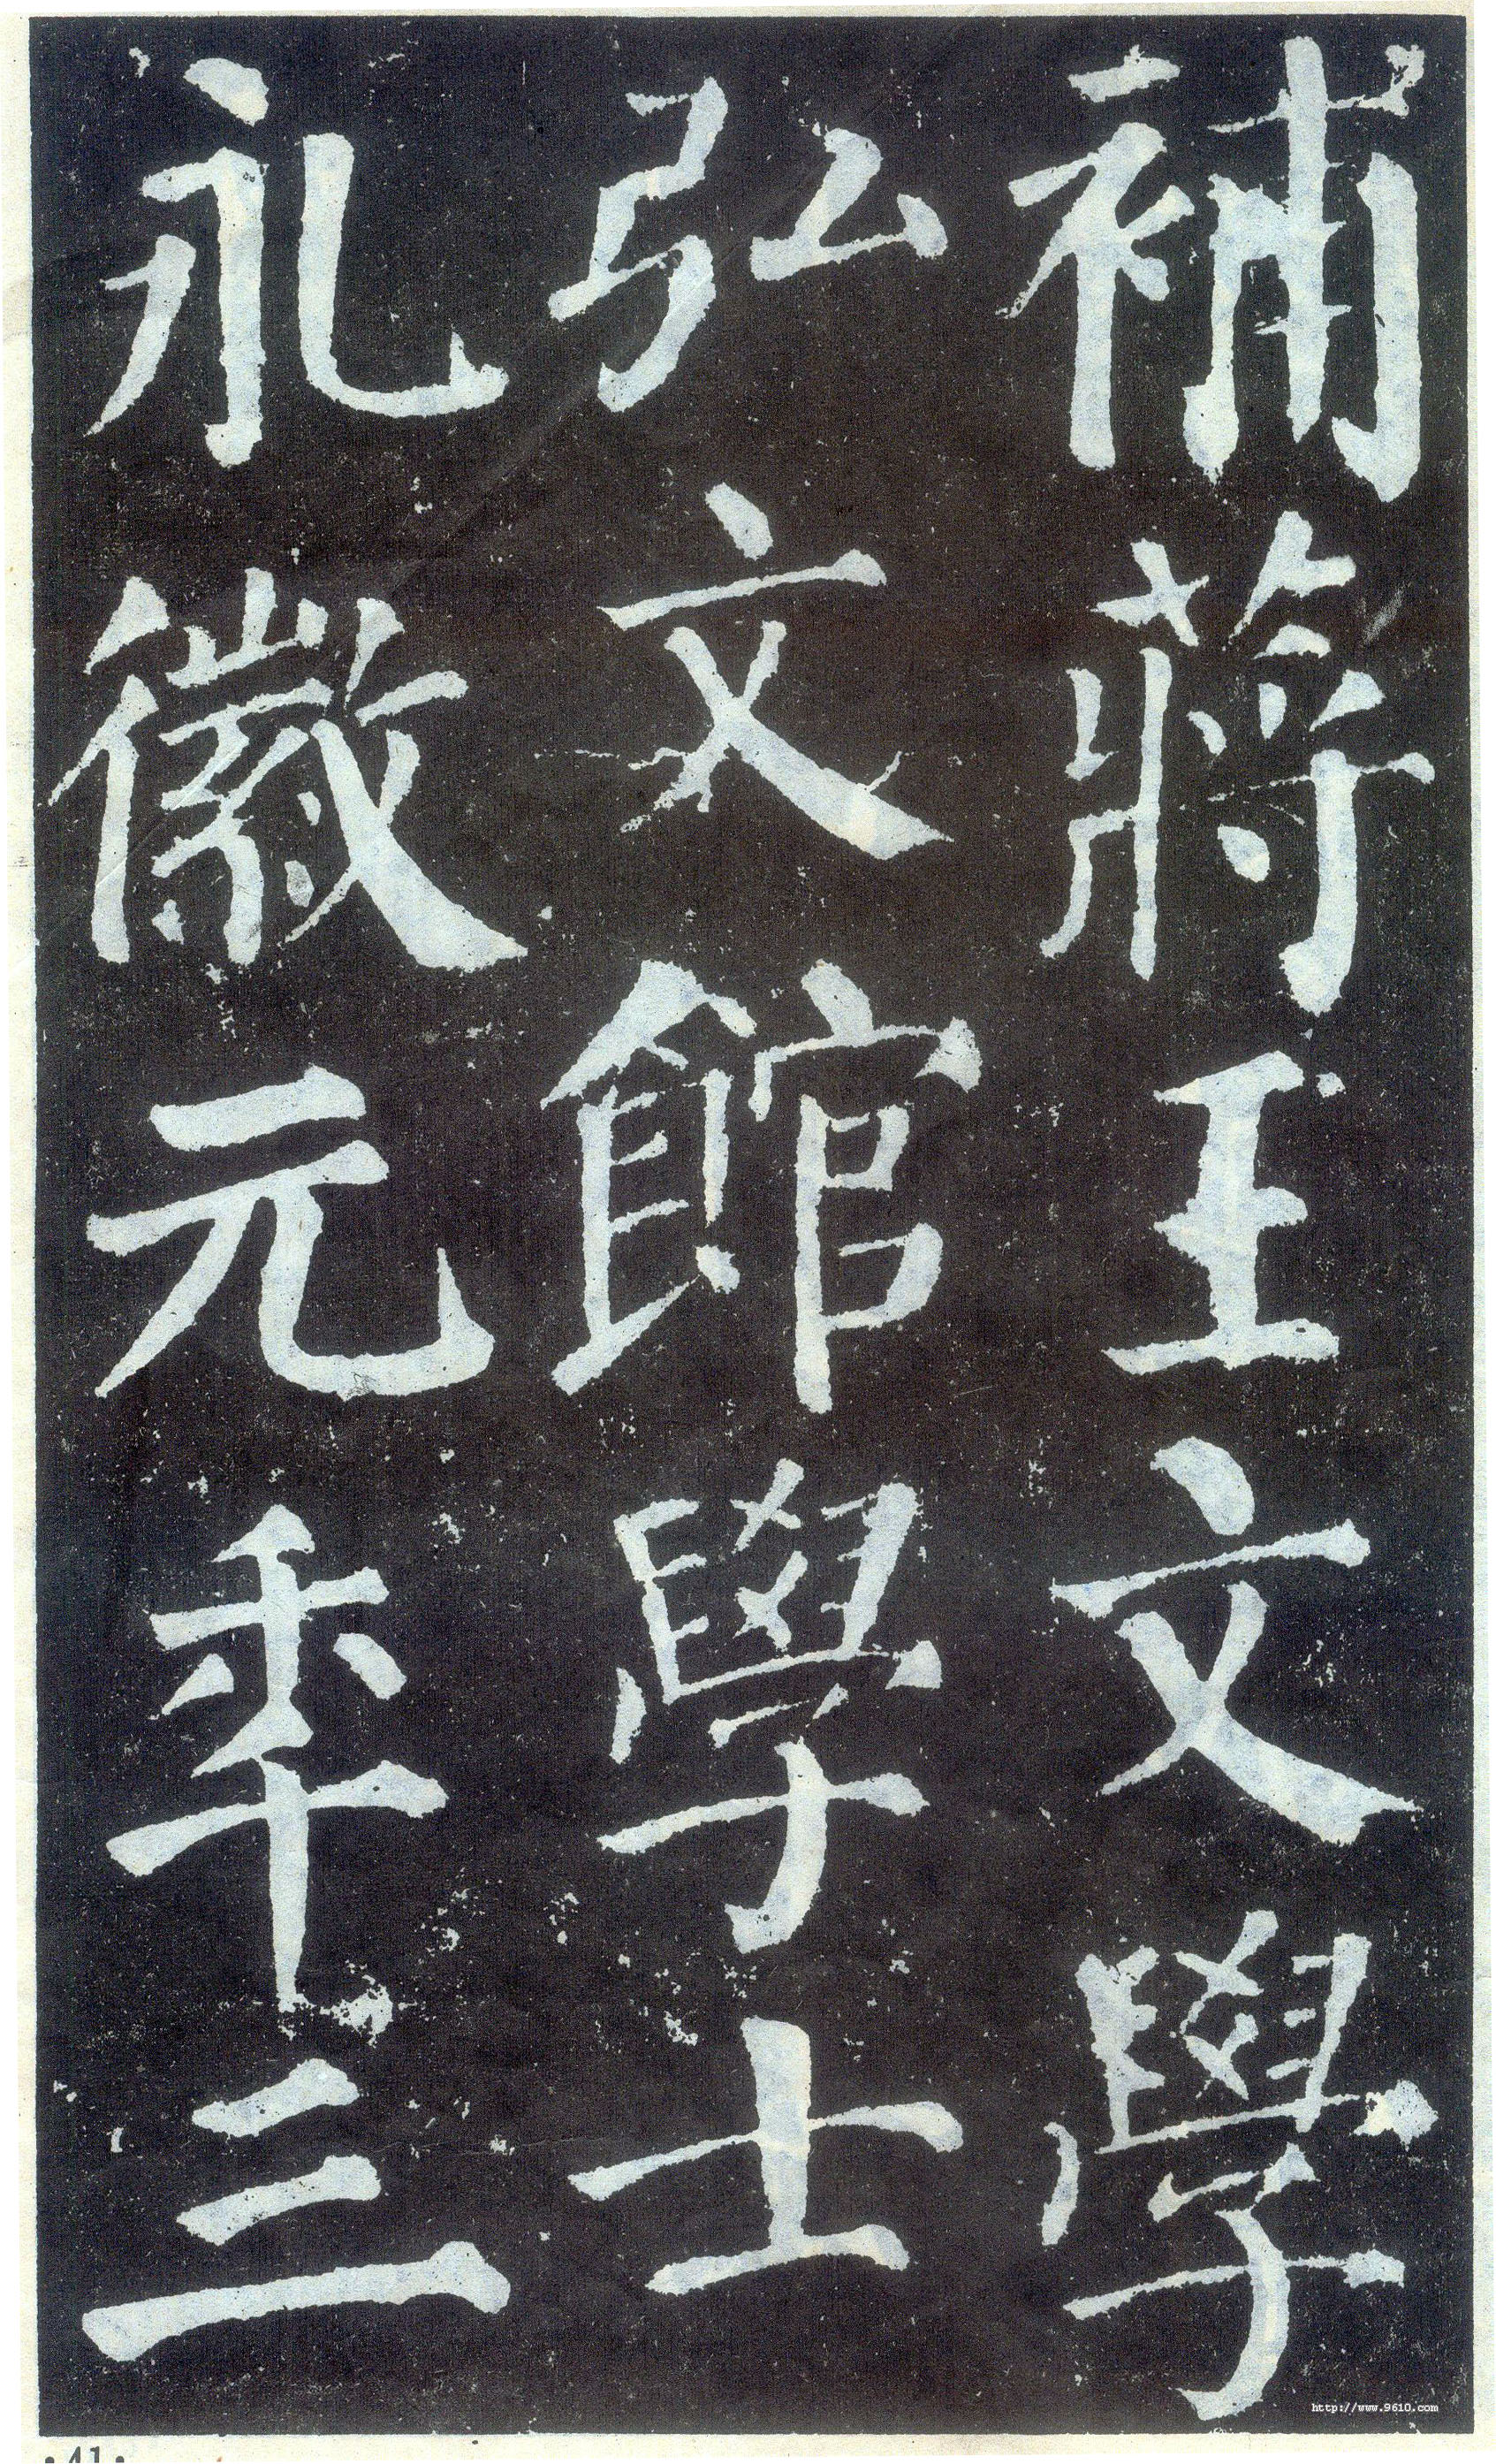 補蔣王文學
弘文館學士
永徽元秊三
http://www.9610.com
•41•